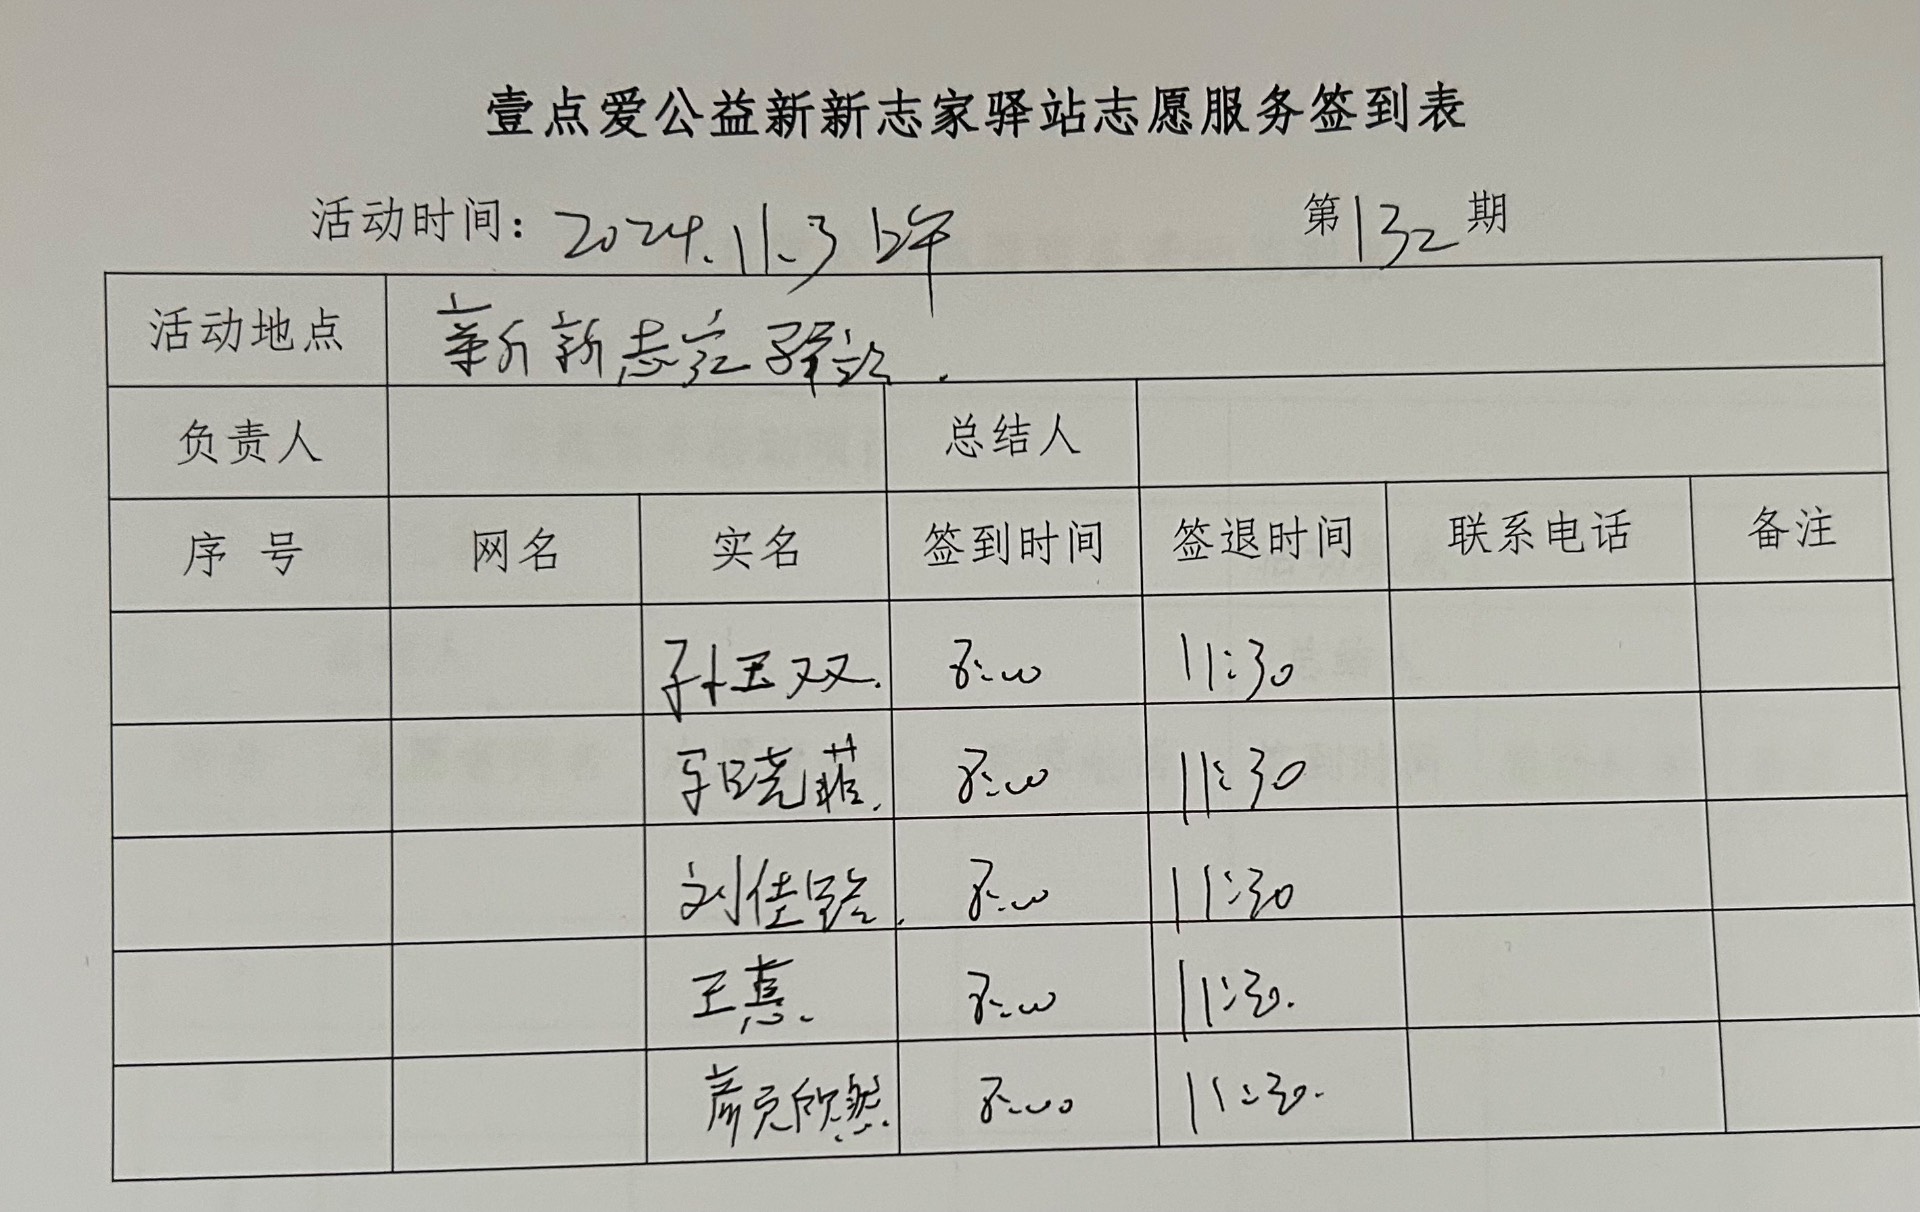 壹点爱公益新新志家驿站志愿服务签到表
活动时间：2024.11.3上午 第132期
活动地点 新新志家驿站.
负责人 总结人
序号 网名 实名 签到时间 签退时间 联系电话 备注
孙玉双. 8:00 11:30
晓菲. 8:00 11:30
刘佳 8:00 11:30
王 8:00 11:30.
颜欣然 8:00 11:30.